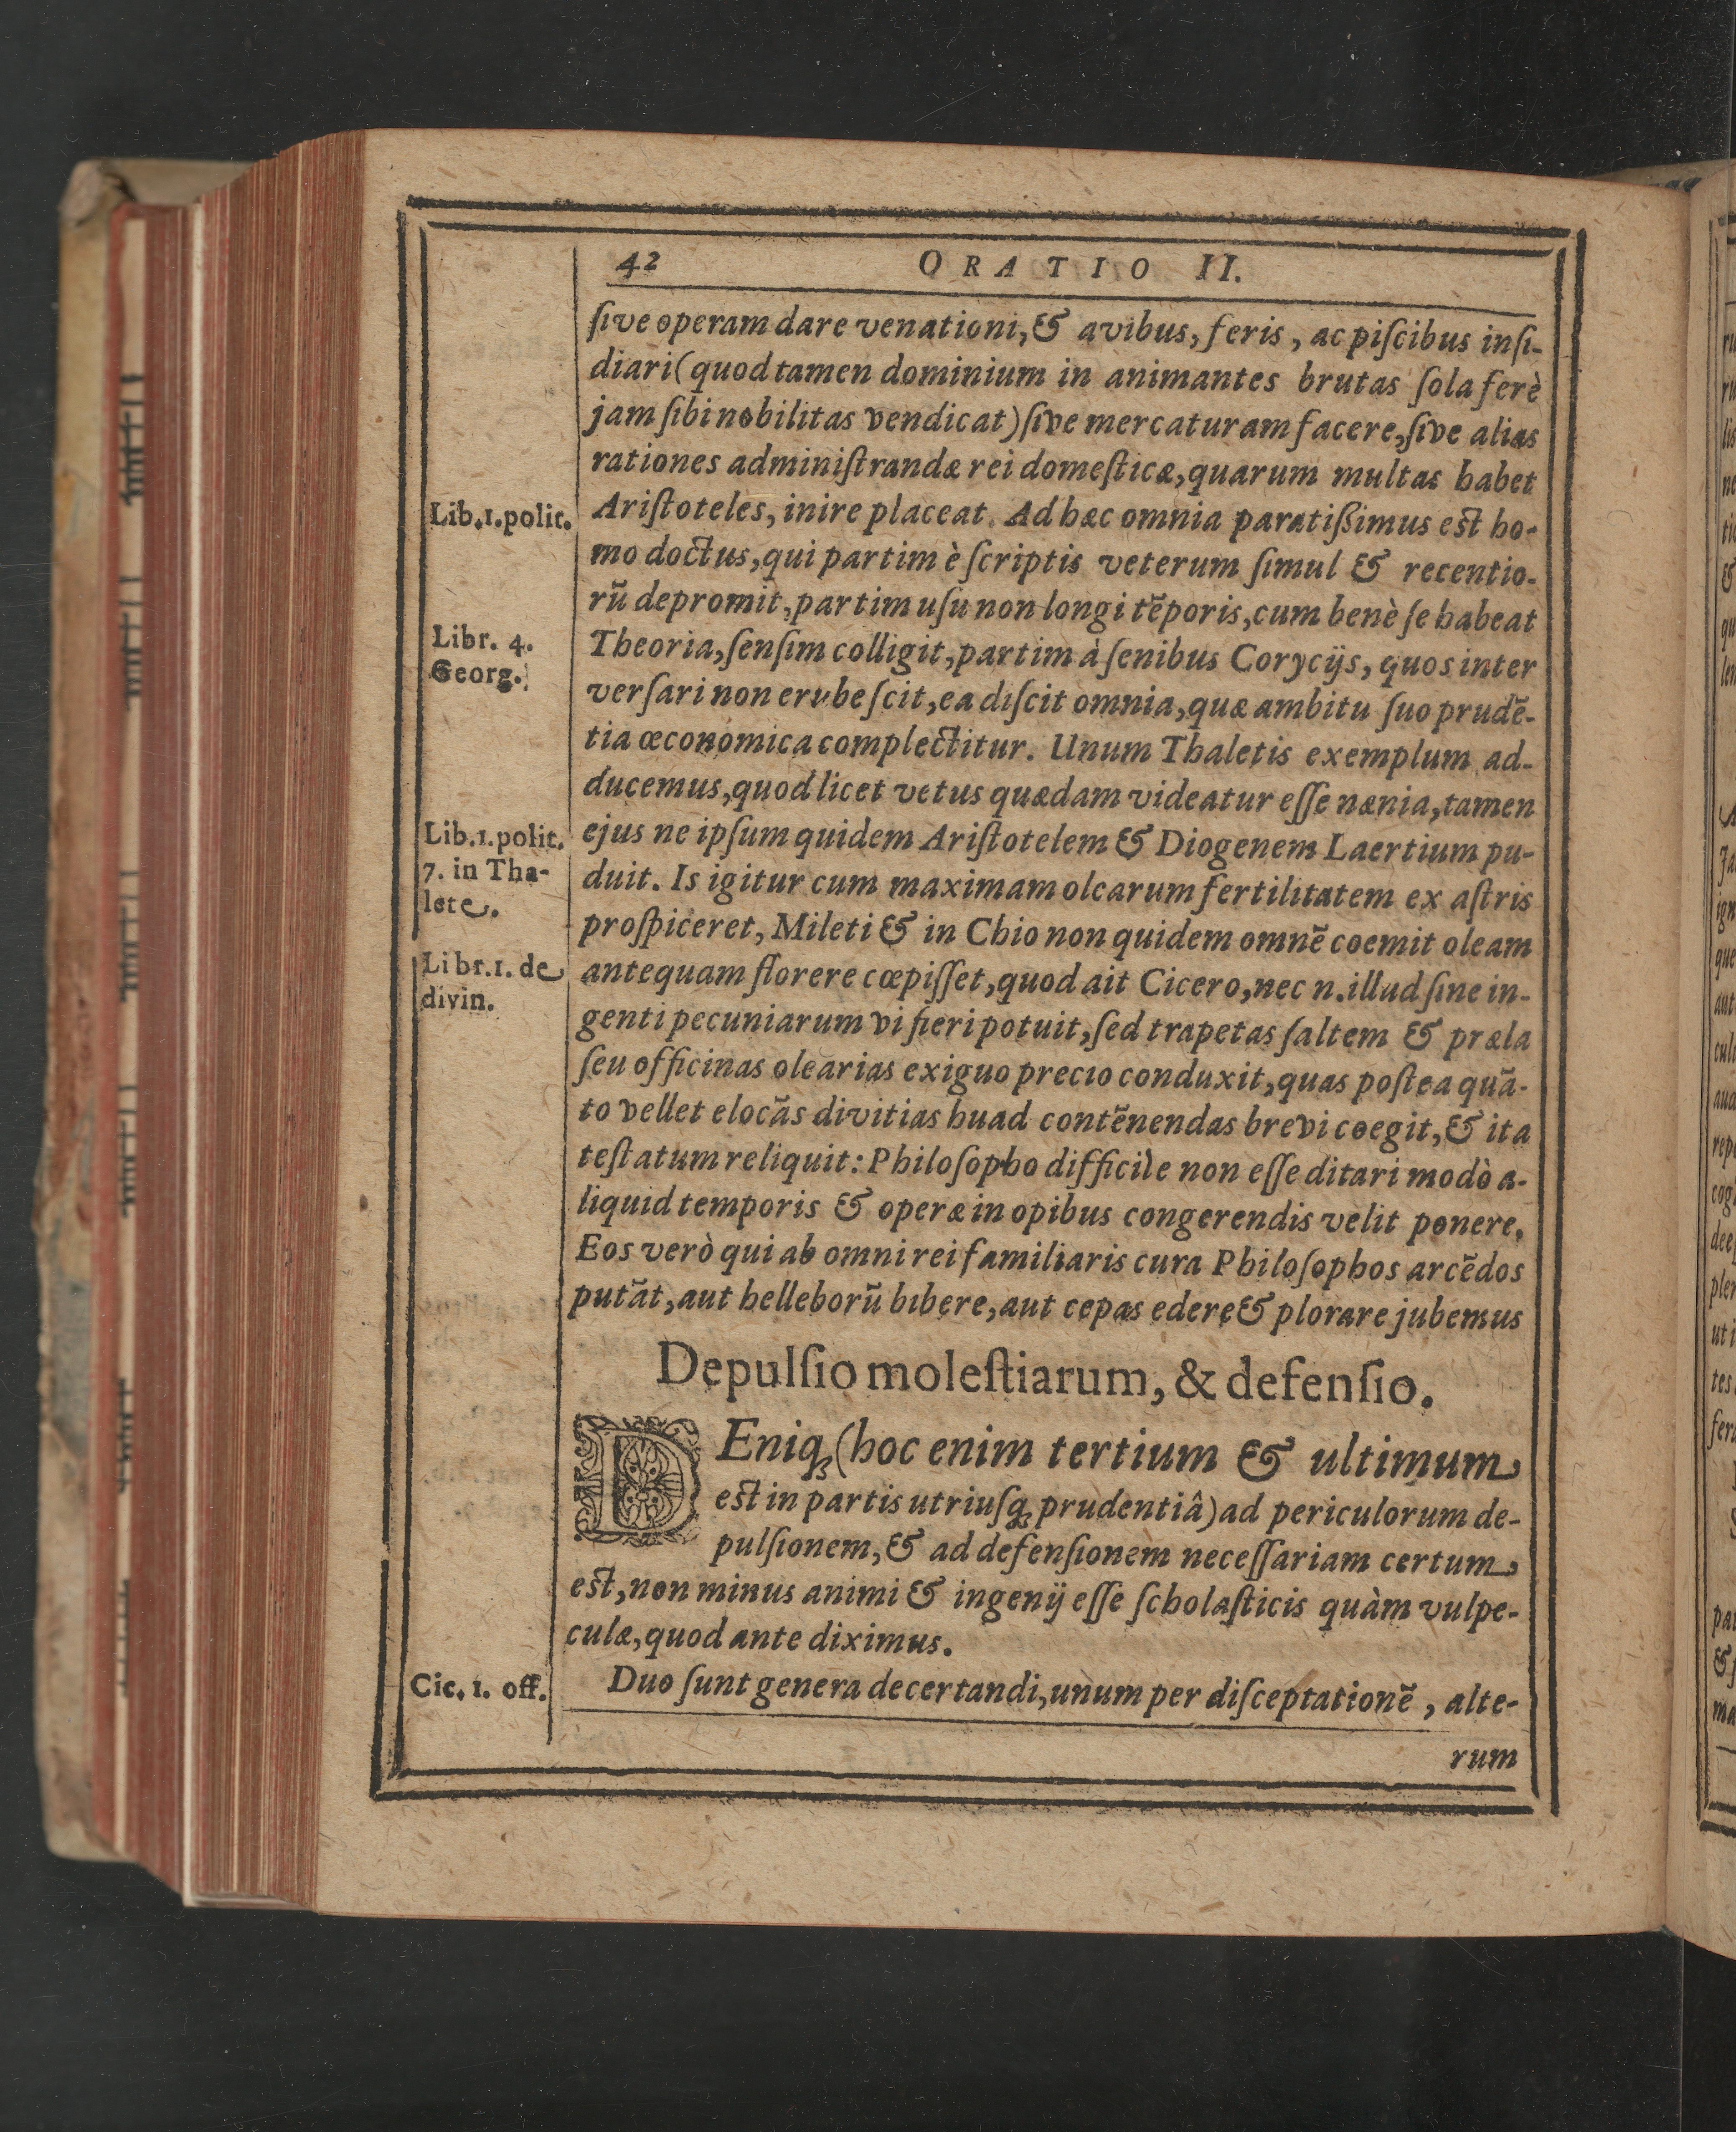 42 ORATIO II.
ſive operam dare venationi, & avibus, feris, ac piſcibus inſi-
diari (quod tamen dominium in animantes brutas ſola ferè
jam ſibi nobilitas vendicat) ſive mercaturam facere, ſive alias
rationes adminiſtrandæ rei domeſticæ, quarum multas habet
Lib.1.polit.
Ariſtoteles, inire placeat. Ad hæc omnia paratißimus est ho-
mo doctus, qui partim è ſcriptis veterum ſimul & recentio-
rũ depromit, partim uſu non longi tẽporis, cum benè ſe habeat
Libr. 4.
Georg.
Theoria, ſenſim colligit, partim à ſenibus Corycijs, quos inter
verſari non erubeſcit, ea diſcit omnia, quæ ambitu ſuo prudẽ-
tia œconomica complectitur. Unum Thaletis exemplum ad-
ducemus, quod licet vetus quædam videatur eſſe nænia, tamen
Lib.1.polit.
7. in Tha-
lete.
ejus ne ipſum quidem Ariſtotelem & Diogenem Laertium pu-
duit. Is igitur cum maximam olearum fertilitatem ex aſtris
proſpiceret, Mileti & in Chio non quidem omnẽ coemit oleam
Libr.1. de
divin.
antequam florere cœpiſſet, quod ait Cicero, nec n. illud ſine in-
genti pecuniarum vi fieri potuit, ſed trapetas ſaltem & præla
ſeu officinas olearias exiguo precio conduxit, quas poſtea quã-
to vellet elocãs divitias huad contẽnendas brevi coegit, & ita
teſtatum reliquit: Philoſopho difficile non eſſe ditari modò a-
liquid temporis & operæ in opibus congerendis velit ponere,
Eos verò qui ab omni rei familiaris cura Philoſophos arcẽdos
putãt, aut helleborũ bibere, aut cepas edere & plorare jubemus
Depulſio moleſtiarum, & defenſio.
DEniq; (hoc enim tertium & ultimum
est in partis utriuſq; prudentiâ) ad periculorum de-
pulſionem, & ad defenſionem neceſſariam certum
est, non minus animi & ingenij eſſe ſcholaſticis quàm vulpe-
culæ, quod ante diximus.
Cic. 1. off.
Duo ſunt genera decertandi, unum per diſceptationẽ, alte-
rum